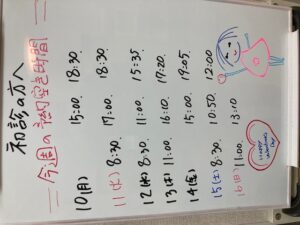 初診の方へ
= 今週の予約空き時間 =
10(月) 15:00. 18:30.
11(火) 8:30. 17:00. 18:30.
12(水) 8:30. 11:00. 15:35.
13(木) 11:00. 16:10. 17:20.
14(金) 15:00. 19:05.
15(土) 8:30. 10:50. 12:00
16(日) 11:00. 13:10
HAPPY
Day